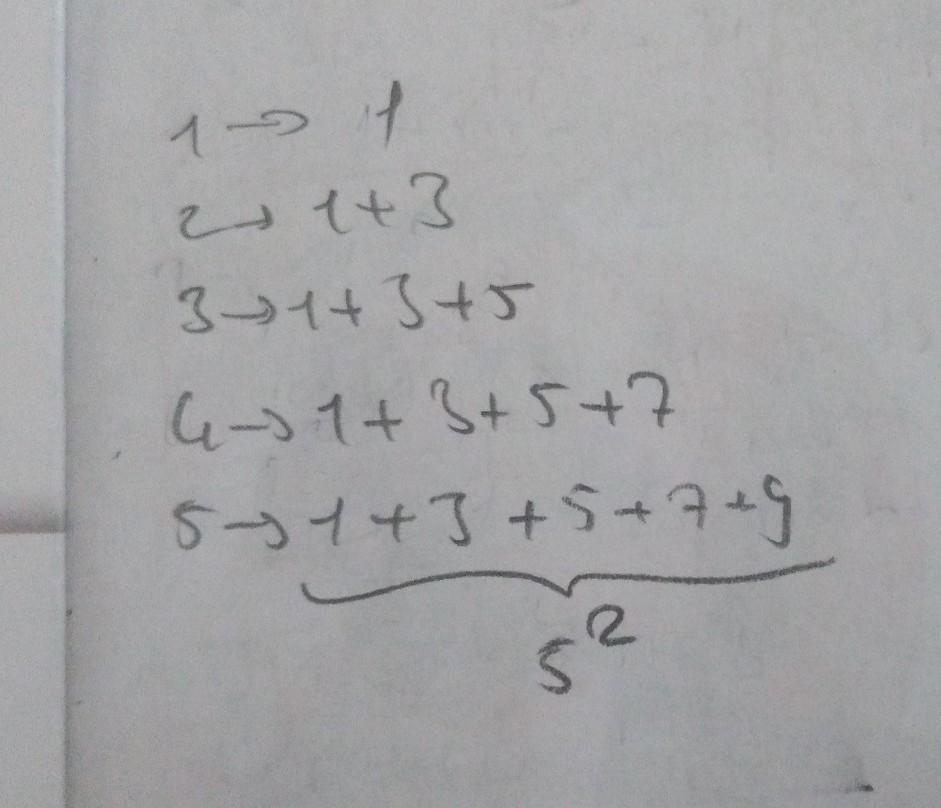 1 → 1
2 → 1+3
3 → 1+3+5
4 → 1+3+5+7
5 → 1+3+5+7+9
5²